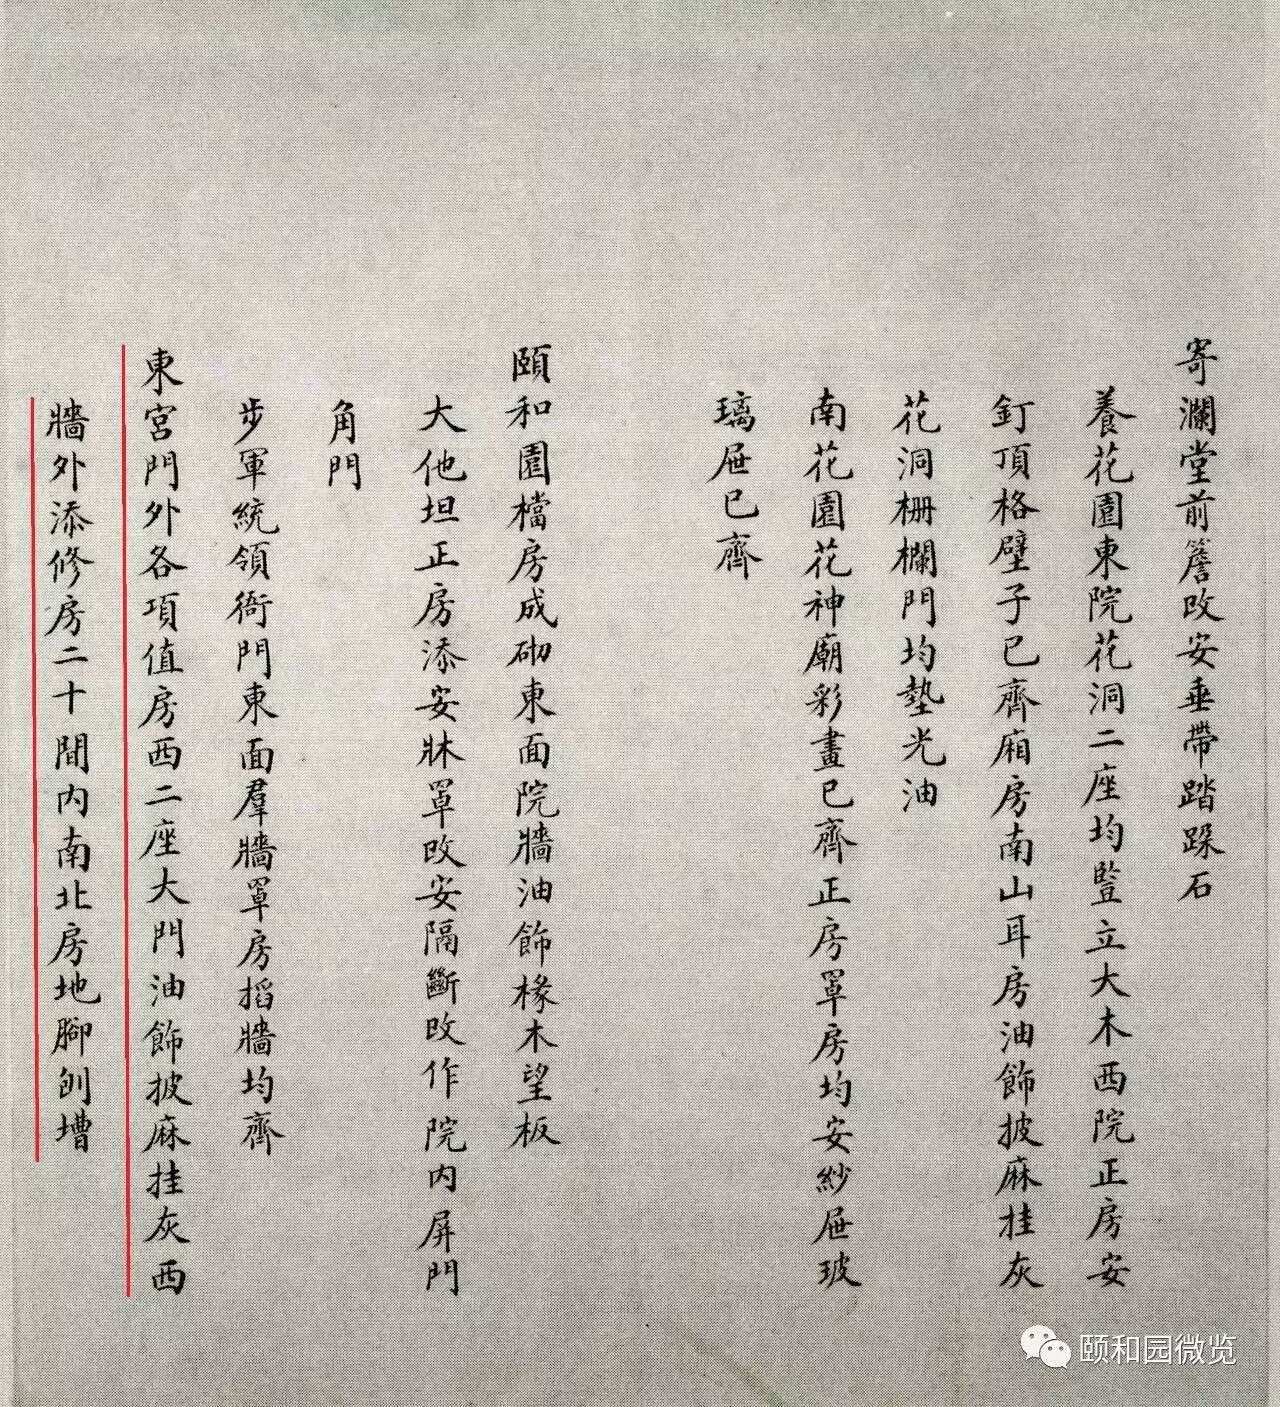 寄瀾堂前簷改安垂帶踏跺石
養花園東院花洞二座均豎立大木西院正房安
釘頂格壁子已齊廂房南山耳房油飾披麻挂灰
花洞柵欄門均墊光油
南花園花神廟彩畫已齊正房罩房均安紗屜玻
璃屜已齊
頤和園檔房成砌東面院牆油飾椽木望板
大他坦正房添安牀罩改安隔斷改作院內屏門
角門
步軍統領衙門東面羣牆罩房搯牆均齊
東宮門外各項值房西二座大門油飾披麻挂灰西
牆外添修房二十間內南北房地腳刨槽
颐和园微览